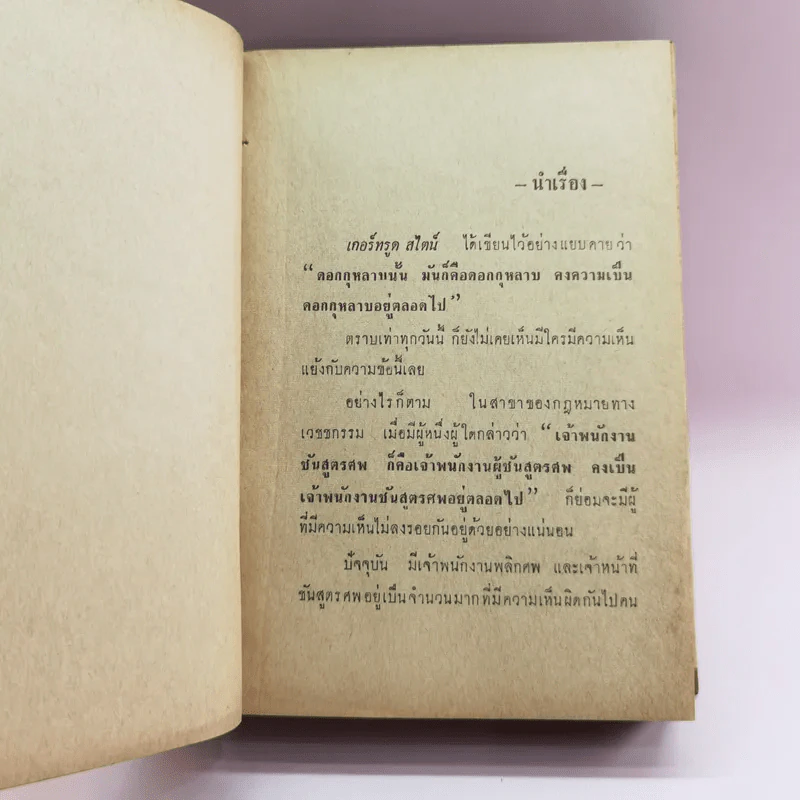 – นำเรื่อง –
เกอร์ทรูด สไตน์ ได้เขียนไว้อย่างแยบคายว่า
“ดอกกุหลาบนั้น มันก็คือดอกกุหลาบ คงความเป็น
ดอกกุหลาบอยู่ตลอดไป”
ตราบเท่าทุกวันนี้ ก็ยังไม่เคยเห็นมีใครมีความเห็น
แย้งกับความข้อนี้เลย
อย่างไรก็ตาม ในสาขาของกฎหมายทาง
เวชชกรรม เมื่อมีผู้หนึ่งผู้ใดกล่าวว่า “เจ้าพนักงาน
ชันสูตรศพ ก็คือเจ้าพนักงานผู้ชันสูตรศพ คงเป็น
เจ้าพนักงานชันสูตรศพอยู่ตลอดไป” ก็ย่อมจะมีผู้
ที่มีความเห็นไม่ลงรอยกันอยู่ด้วยอย่างแน่นอน
ปัจจุบัน มีเจ้าพนักงานพลิกศพ และเจ้าหน้าที่
ชันสูตรศพอยู่เป็นจำนวนมากที่มีความเห็นผิดกันไปคน